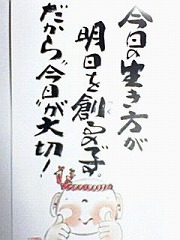 今日の生き方が
明日を創るのです。
だから“今日”が大切！